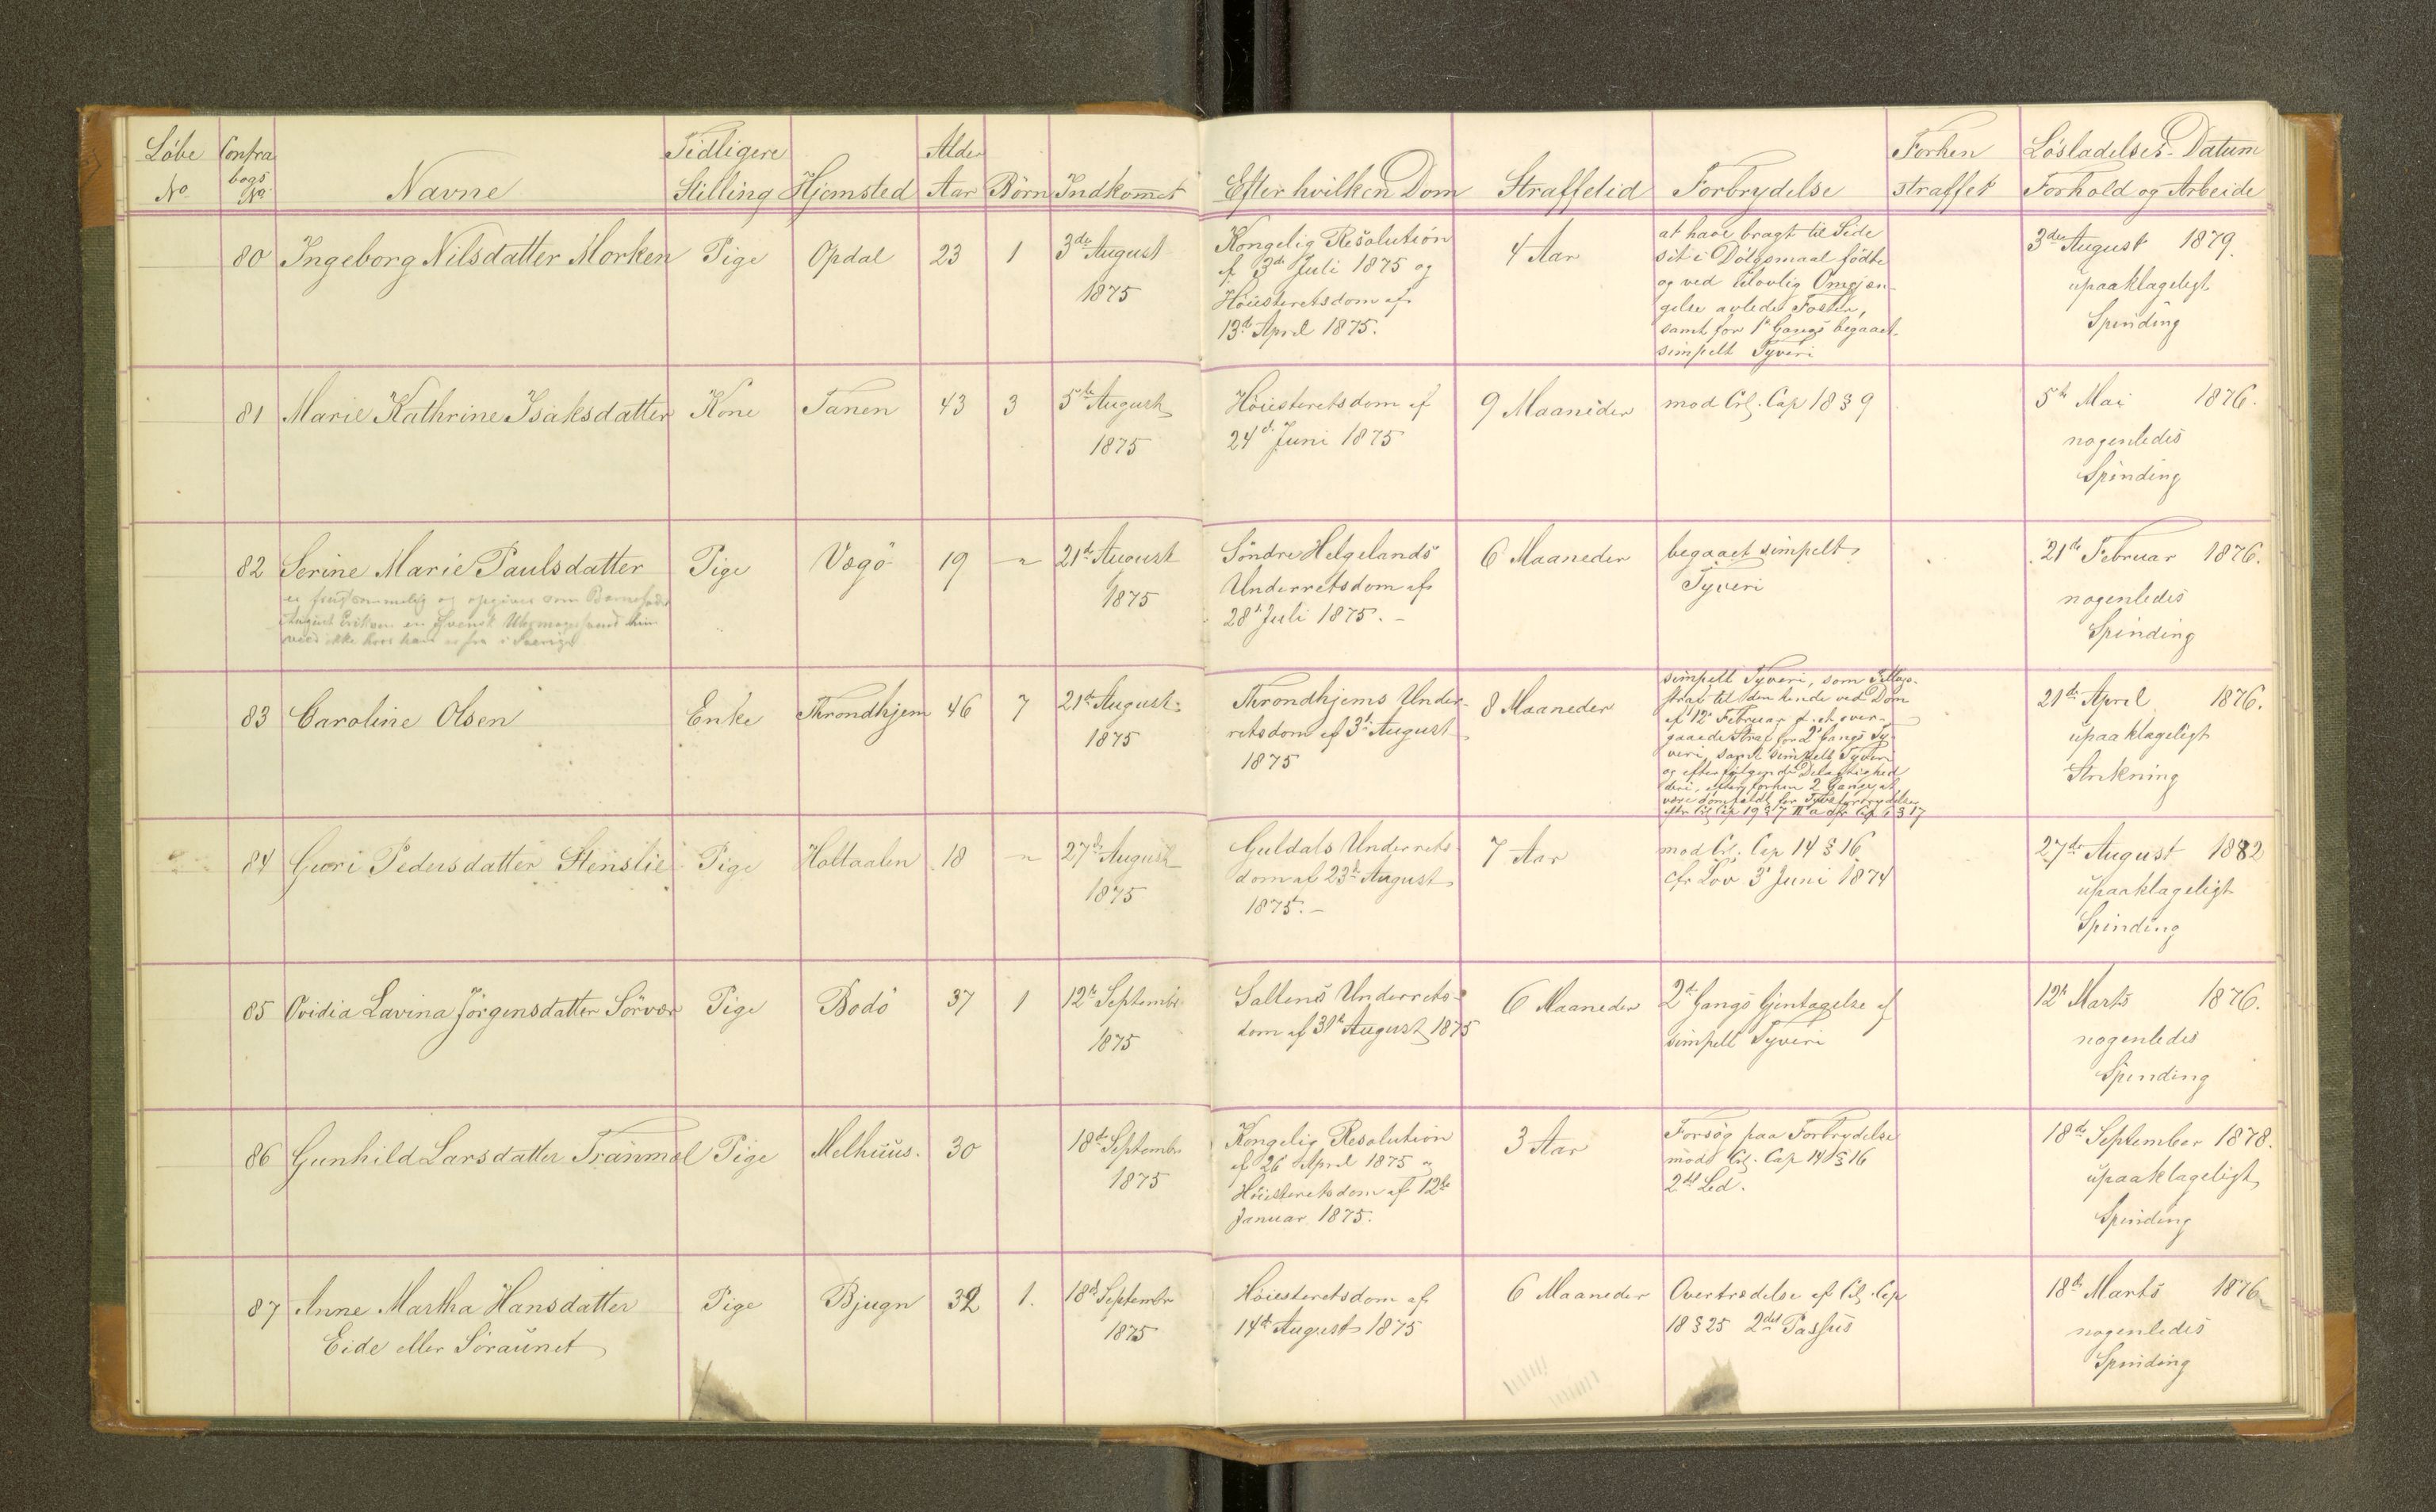 Löbe Contra Tidligere Alder Forhen Lösladelses-Datum
No bogs No. Navne Stilling Hjemsted Aar Börn Indkommet Efter hvilken Dom Straffetid Forbrydelse straffet Forhold og Arbeide
80 Ingeborg Nilsdatter Morken Pige Opdal 23 1 3die August
1875
Kongelig Resolution
af 3die Juli 1875 og
Höiesteretsdom af
13de April 1875.
4 Aar
at have bragt til Side
sit i Dölgsmaal födte
og ved ulovlig Omgjæn-
gelse avlede Foster,
samt for 1ste Gangs begaaet
simpelt Tyveri
3die August 1879.
upaaklageligt
Spinding
81 Marie Kathrine Isaksdatter Kone Tanen 43 3 5te August
1875
Höiesteretsdom af
24de Juni 1875
9 Maaneder
mod Crl. Cap 18 § 9
5te Mai 1876.
nogenledes
Spinding
82 Serine Marie Paulsdatter Pige Vægö 19 " 21de August
1875
er frugtsommelig og opgiver som Barnefader
August Eriksen en Svensk Uhrmagersvend hun
veed ikke hvor han er fra i Sverige
Söndre Helgelands
Underretsdom af
28de Juli 1875. -
6 Maaneder
begaaet simpelt
Tyveri
21de Februar 1876.
nogenledes
Spinding
83 Caroline Olsen Enke Throndhjem 46 7 21de August
1875
Throndhjems Under-
retsdom af 3die August
1875
8 Maaneder
simpelt Tyveri, som Tillægs-
straf til den hende ved Dom
af 12te Februar d. A. over-
gaaede Straf for 2den Gangs Ty-
veri, samt simpelt Tyveri
og efterfölgende Delagtighed
deri, efter forhen 2 Gange at
være domfældt for Tyvsforbrydelse
efter Crl. Cap 19 § 7 II a cfr Cap 6 § 17
21de April 1876.
upaaklageligt
Strikning
84 Guri Pedersdatter Stenslie Pige Holtaalen 18 " 27de August
1875
Guldals Underrets-
dom af 23de August
1875. -
7 Aar
mod Crl. Cap 14 § 16
cfr Lov 3die Juni 1874
27de August 1882
upaaklageligt
Spinding
85 Ovidia Lavina Jörgensdatter Sörvær Pige Bodö 37 1 12te Septembr
1875
Saltens Underrets-
dom af 31te August 1875
6 Maaneder
2den Gangs Gjentagelse af
simpelt Tyveri
12te Marts 1876.
nogenledes
Spinding
86 Gunhild Larsdatter Tranmæl Pige Melhuus. 30 18de Septembr
1875
Kongelig Resolution
af 26de April 1875 og
Höiesteretsdom af 12te
Januar 1875.
3 Aar
Forsög paa Forbrydelse
mod Crl. Cap 14 § 16
2det Led.
18de September 1878.
upaaklageligt
Spinding
87 Anne Martha Hansdatter Pige Bjugn 32 1. 18de Septembr
Eide eller Söraunet 1875
Höiesteretsdom af
14de August 1875
6 Maaneder
Overtrædelse af Crl. Cap
18 § 25 2det Passus
18de Marts 1876
nogenledes
Spinding